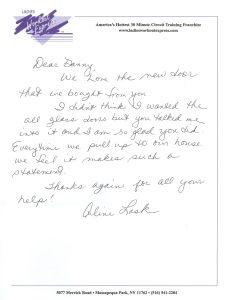 LADIES
Workout
Express
America's Hottest 30 Minute Circuit Training Franchise
www.ladiesworkoutexpress.com
Dear Danny,
We love the new door
that we bought from you
I didn't think I wanted the
all glass doors but you talked me
into it and I am so glad you did.
Everytime we pull up to our house
we feel it makes such a
statement.
Thanks again for all your
help!
Aline Lask
5077 Merrick Road • Massapequa Park, NY 11762 • (516) 541-2204